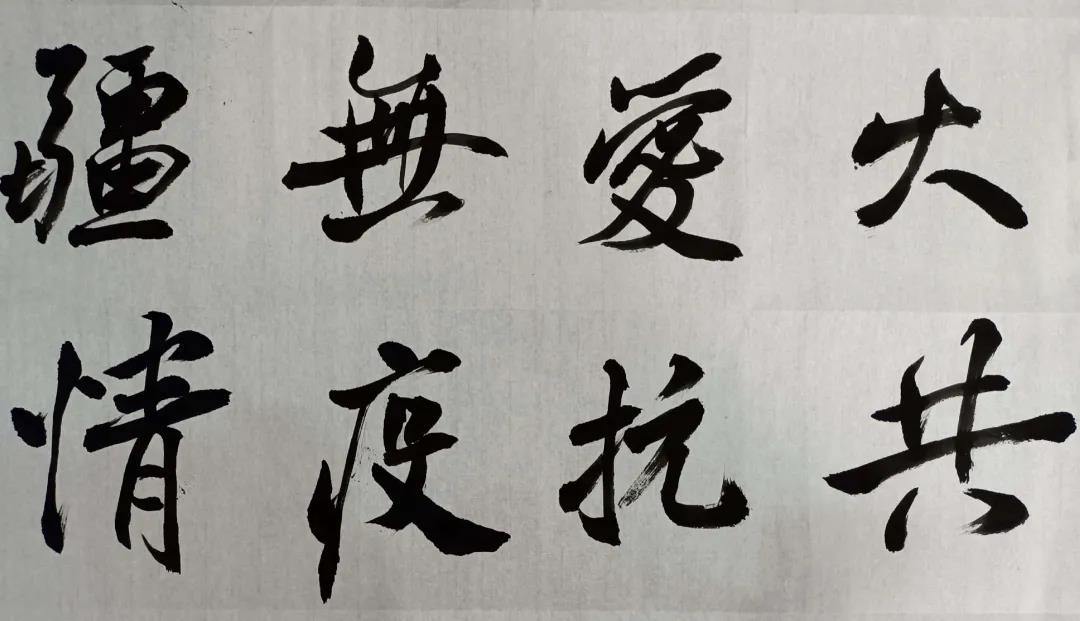 大愛無疆
共抗疫情